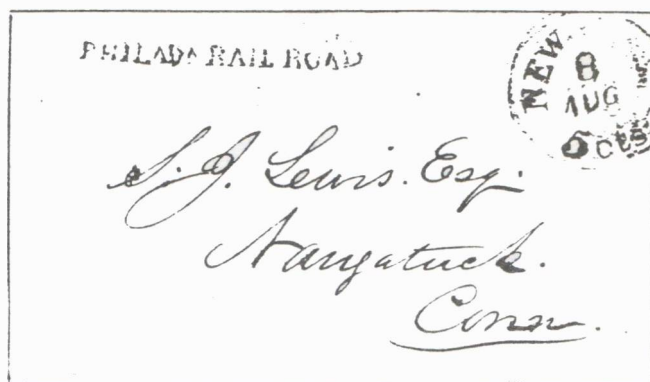 PHILADA RAIL ROAD
NEW
8
AUG
5 cts
S. J. Lewis. Esq.
Naugatuck.
Conn.